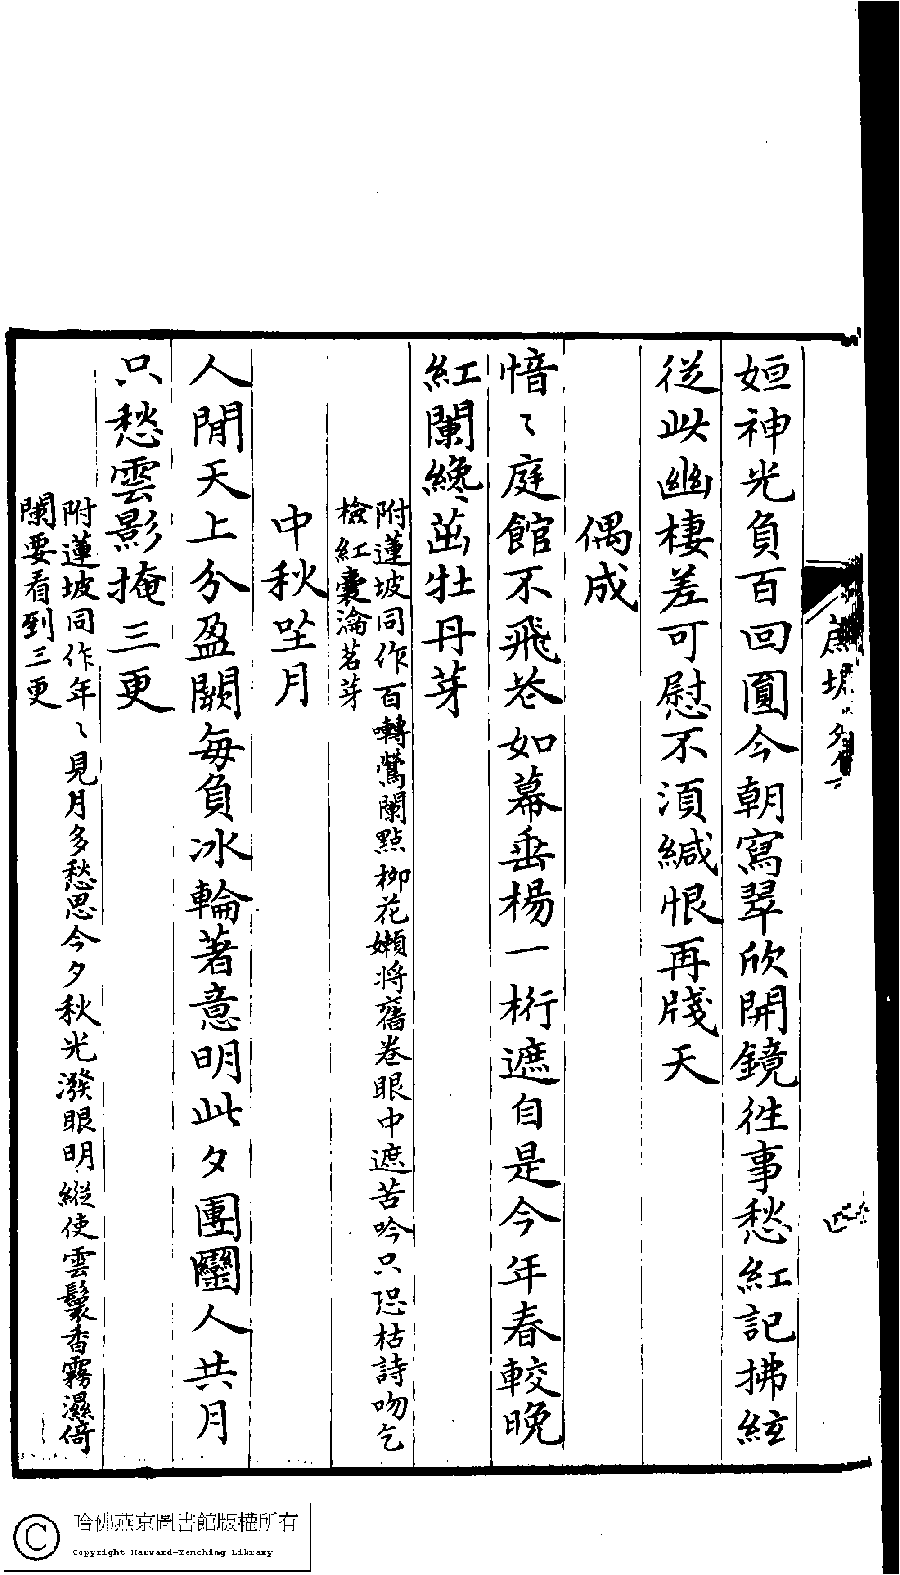 姮神光負百回圓今朝寫翠欣開鏡徃事愁紅記拂絃
從此幽棲差可慰不須緘恨再牋天
偶成
愔〻庭館不飛花如幕垂楊一桁遮自是今年春較晚
紅闌纔茁牡丹芽
附蓮坡同作百囀鶯闌點柳花嬾將舊卷眼中遮苦吟只恐枯詩吻乞
檢紅囊瀹茗芽
中秋坐月
人閒天上分盈闕每負冰輪著意明此夕團圞人共月
只愁雲影掩三更
附蓮坡同作年〻見月多愁思今夕秋光潑眼明縱使雲鬟香霧濕倚
闌要看到三更
哈佛燕京圖書館版權所有
Copyright Harvard-Yenching Library